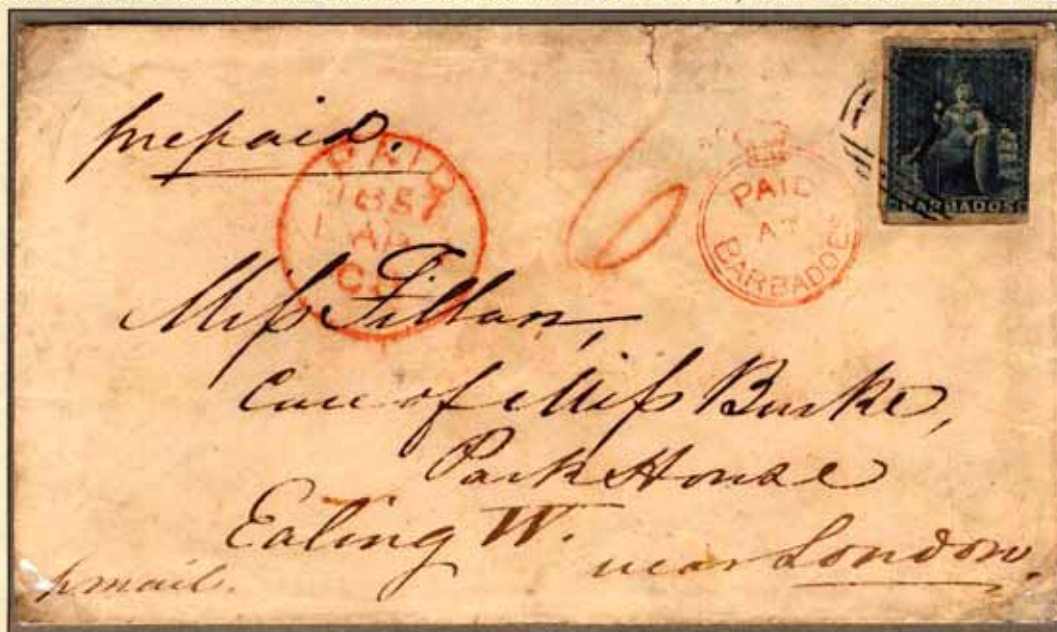 prepaid.
PAID
1857
1 AP
6
PAID
AT
BARBADOES
BARBADOS
Miss Fillan,
Care of Miss Burke,
Park House
Ealing W.
near London.
p mail.